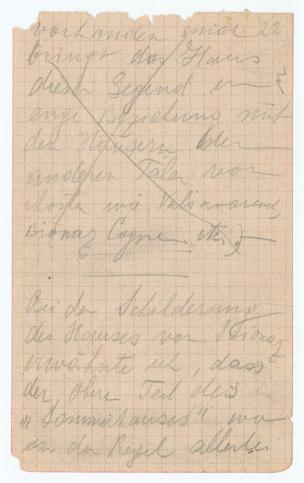 vorhanden sind 22
bringt das Haus
dieser Gegend in
enge Beziehung mit
den Häusern der
anderen Täler von
Aosta wie Valsavaranche
Bionaz Cogne etc.)
Bei der Schilderung
des Hauses von Bionaz
erwähnte ich, dass
der obere Teil des
"Sommerhauses" wo
in der Regel allerlei